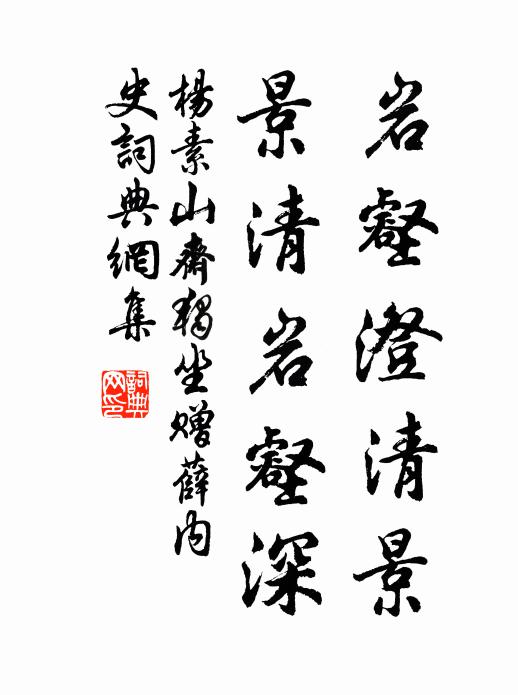 岩壑澄清景
景清岩壑深
楊素山齋獨坐贈薛內
史詞典網集
詞典
网印